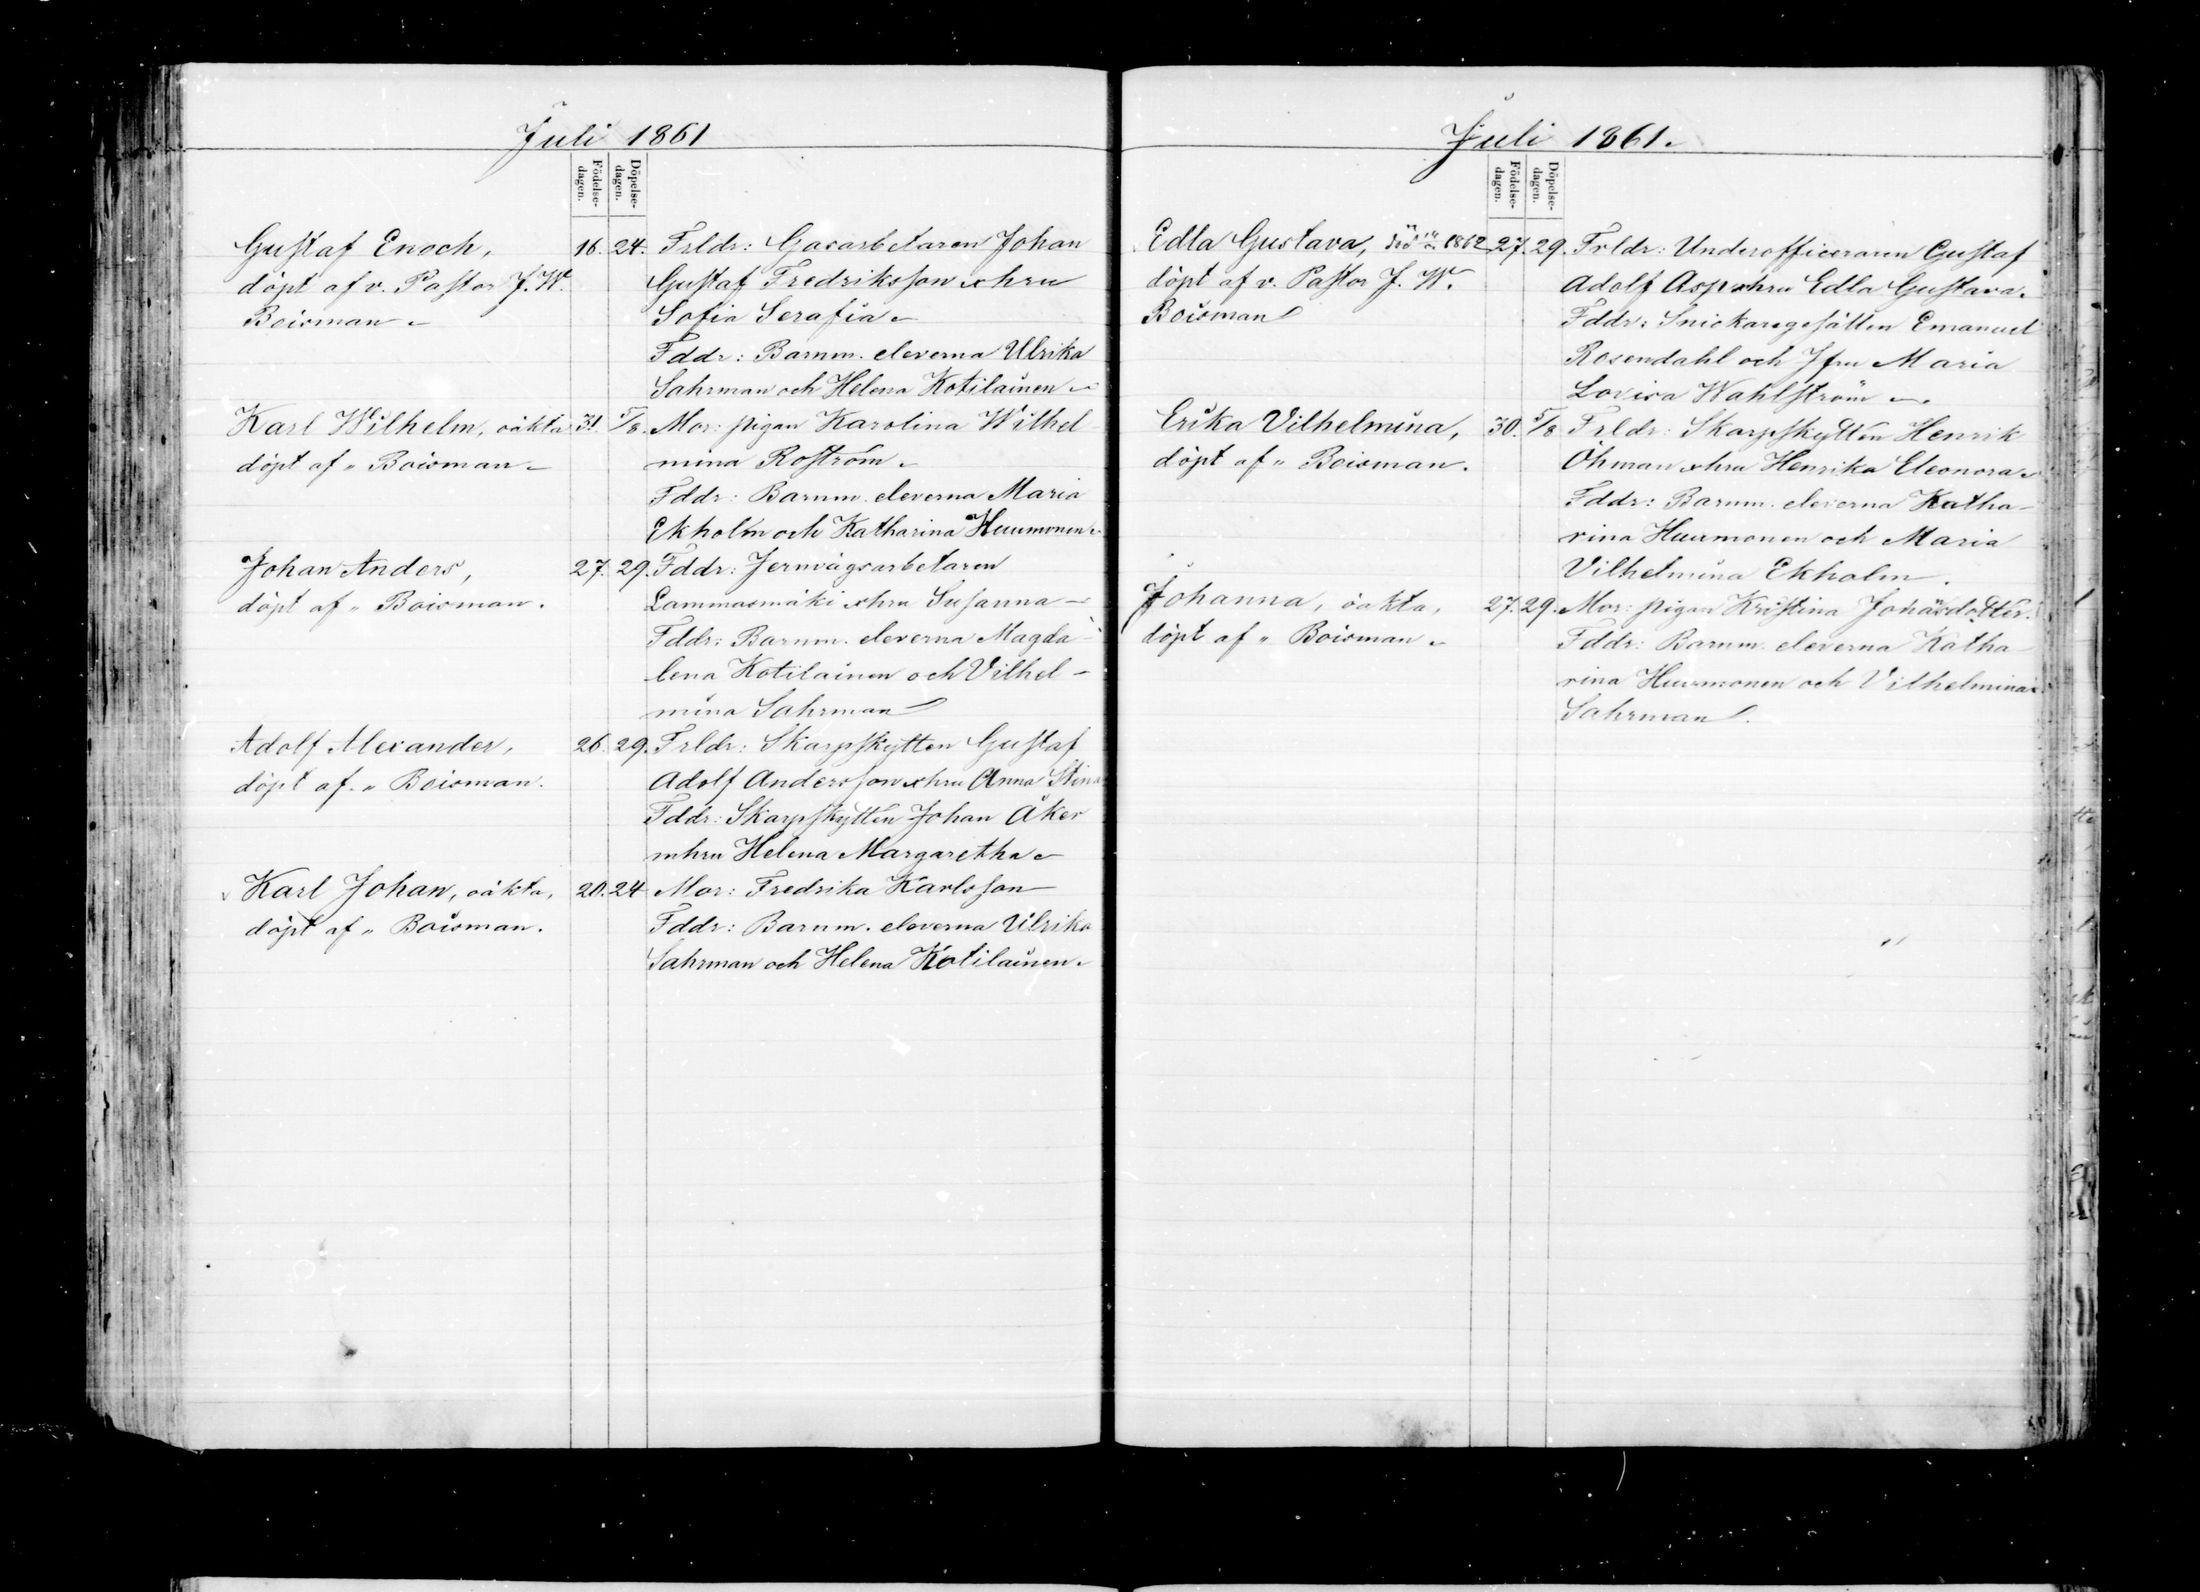 Juli 1861
Födelse-
dagen.
Döpelse-
dagen.
Gustaf Enoch,
döpt af v. Pastor J. W.
Boisman
16. 24. Frldr: Gasarbetaren Johan
Gustaf Fredriksson o hru
Sofia Serafia
Fddr: Barnm. eleverna Ulrika
Sahrman och Helena Kotilainen
Karl Wilhelm, oäkta
döpt af „ Boisman
31 5/8. Mor: pigan Karolina Wilhel
mina Roström
Fddr: Barnm. eleverna Maria
Ekholm och Katharina Huumonen
Johan Anders,
döpt af „ Boisman.
27. 29. Fddr: Jernvägsarbetaren
Lammasmäki o hru Susanna
Fddr: Barnm. eleverna Magda-
lena Kotilainen och Vilhel-
mina Sahrman
Adolf Alexander,
döpt af „ Boisman.
26. 29. Frldr: Skarpskytten Gustaf
Adolf Andersson o hru Anna Stina
Fddr: Skarpskytten Johan Åker
mhru Helena Margaretha
Karl Johan, oäkta,
döpt af „ Boisman.
20. 24 Mor: Fredrika Karlsson
Fddr: Barnm. eleverna Ulrika
Sahrman och Helena Kotilainen
Juli 1861.
Födelse-
dagen.
Döpelse-
dagen.
Edla Gustava, död 1862
döpt af v. Pastor J. W.
Boisman
27. 29. Frldr: Underofficeraren Gustaf
Adolf Asp o hru Edla Gustava.
Fddr: Snickaregesällen Emanuel
Rosendahl och Jfru Maria
Lovisa Wahlström
Erika Vilhelmina,
döpt af „ Boisman.
30. 5/8 Frldr: Skarpskytten Henrik
Öhman o hru Henrika Eleonora
Fddr: Barnm. eleverna Katha-
rina Huumonen och Maria
Vilhelmina Ekholm.
Johanna, oäkta,
döpt af „ Boisman
27. 29. Mor: pigan Kristina Johansdotter.
Fddr: Barnm. eleverna Katha
rina Huumonen och Vilhelmina
Sahrman.